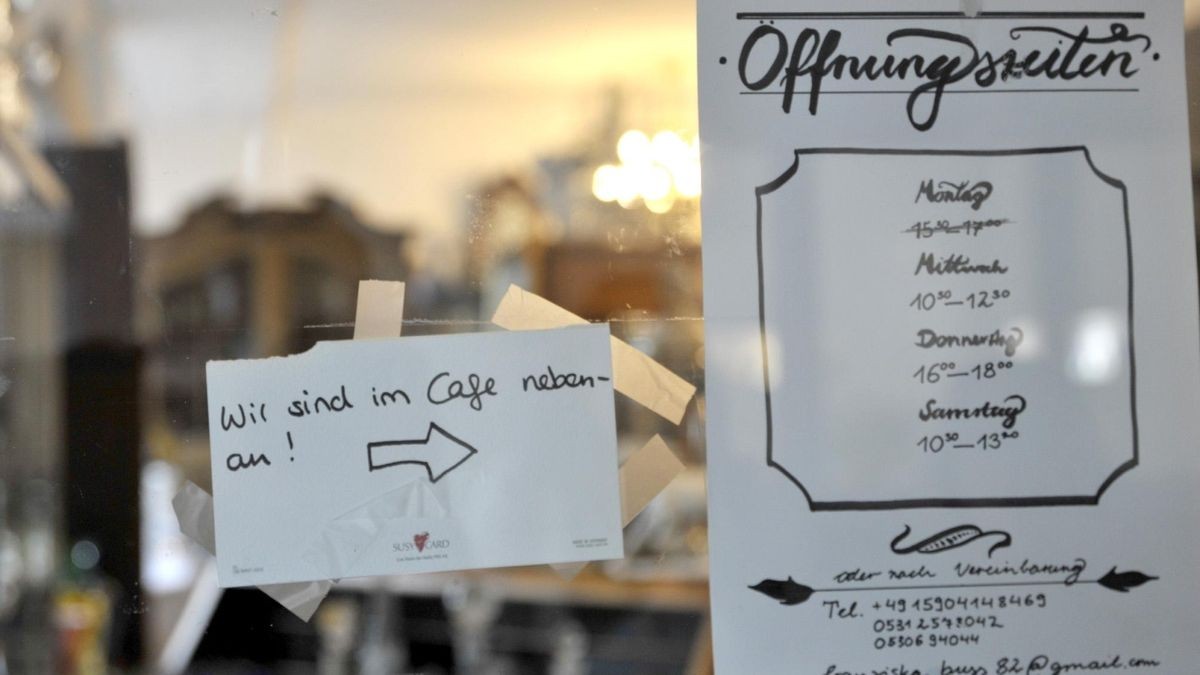 Wir sind im Cafe neben-
an!
SUSY CARD
Öffnungszeiten
Montag
15³⁰–17⁰⁰
Mittwoch
10³⁰–12³⁰
Donnerstag
16⁰⁰–18⁰⁰
Samstag
10³⁰–13³⁰
oder nach Vereinbarung
Tel. +4915904148469
0531 2573042
05306 94044
franziska.buss82@gmail.com